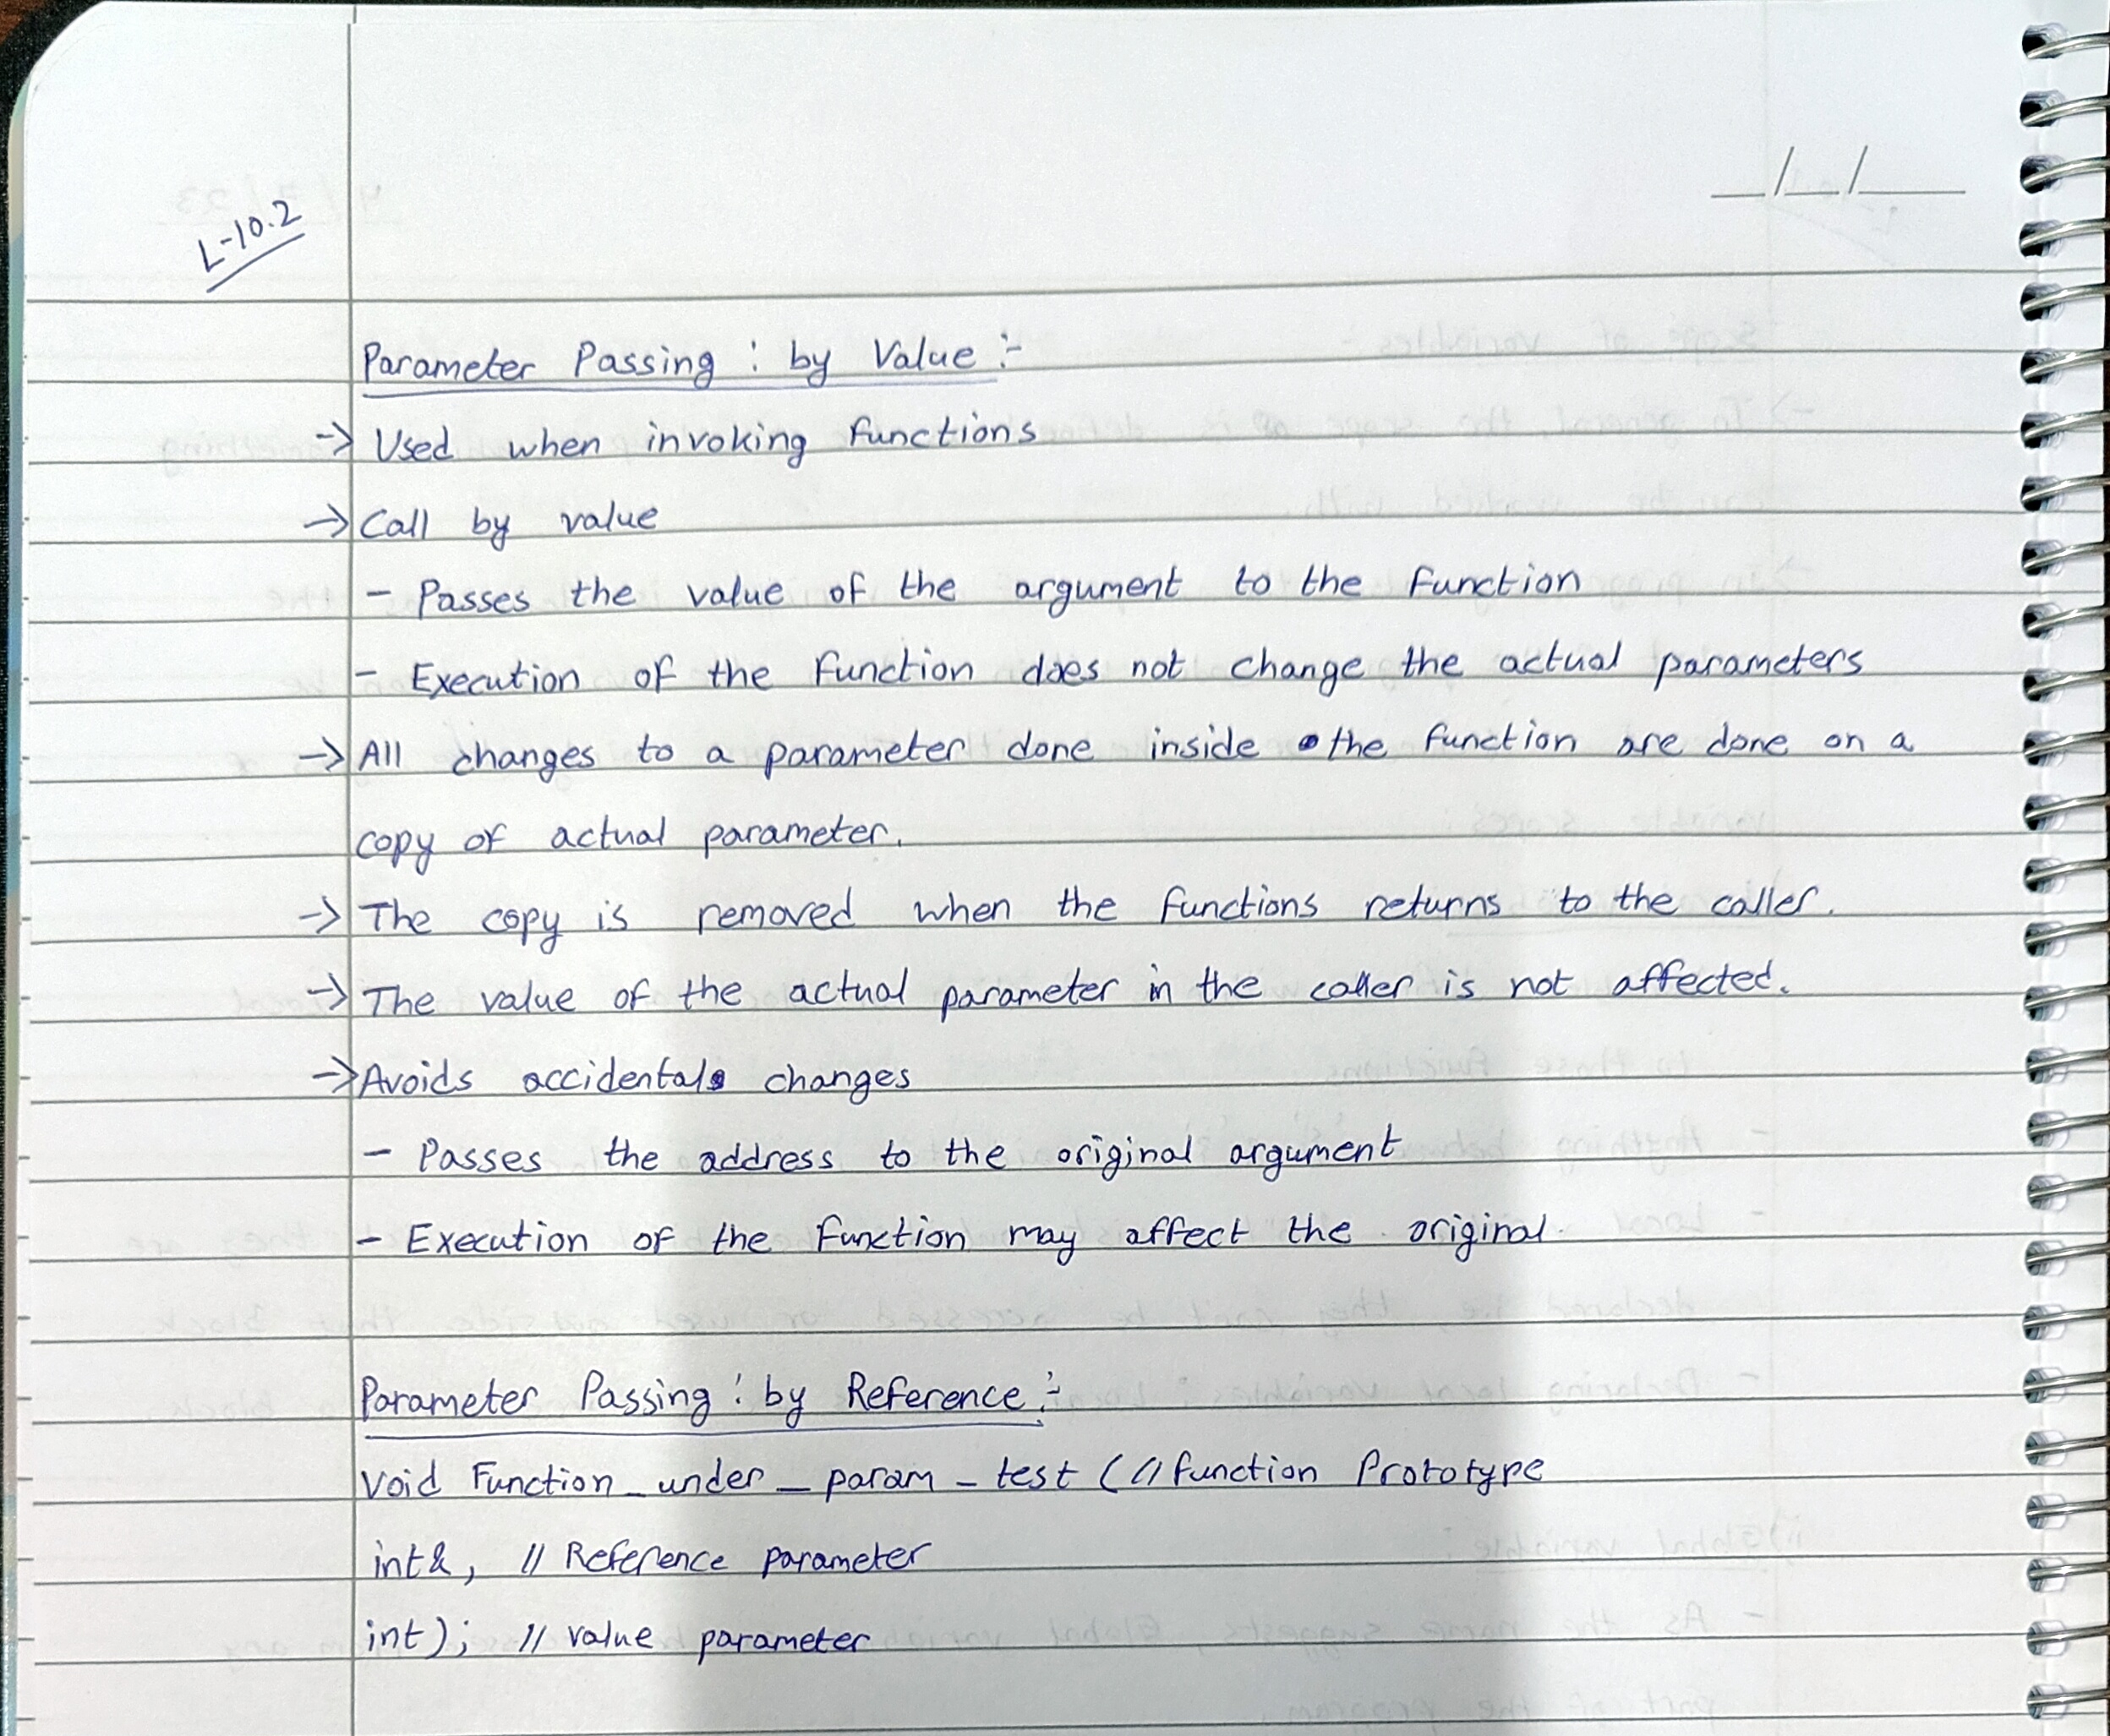 L-10.2
__/__/____
Parameter Passing : by Value :-
-> Used when invoking functions
-> Call by value
- Passes the value of the argument to the function
- Execution of the function does not change the actual parameters
-> All changes to a parameter done inside the function are done on a
copy of actual parameter.
-> The copy is removed when the functions returns to the caller.
-> The value of the actual parameter in the caller is not affected.
-> Avoids accidental changes
- Passes the address to the original argument
- Execution of the function may affect the original.
Parameter Passing : by Reference :-
Void Function_under_param_test (// function Prototype
int&, // Reference parameter
int); // value parameter